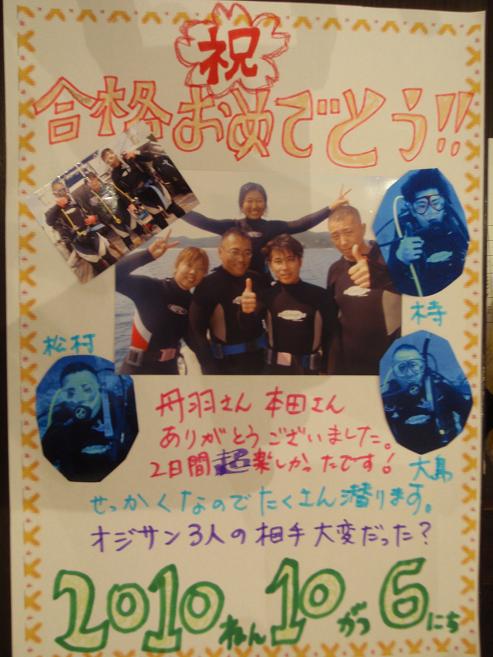 祝
合格おめでとう!!
松村
大島
丹羽さん 本田さん
ありがとうございました。
2日間超楽しかったです!
せっかくなのでたくさん潜ります。
オジサン3人の相手大変だった?
2010ねん10がつ6にち